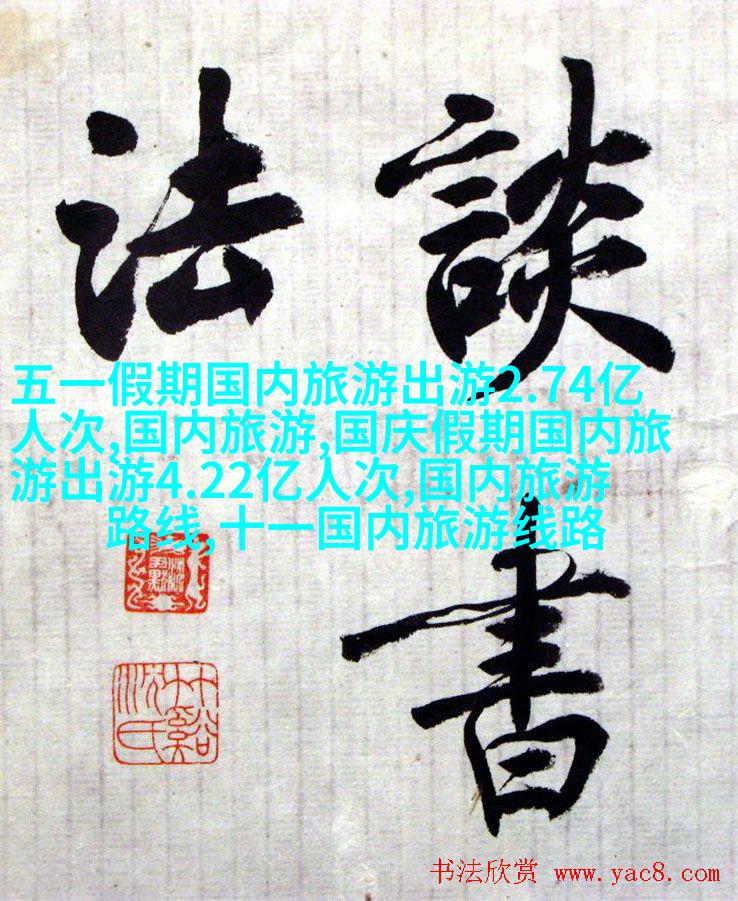 談書
法
五一假期国内旅游出游2.74亿
人次,国内旅游,国庆假期国内旅
游出游4.22亿人次,国内旅游
路线,十一国内旅游线路
竹谿
沈氏
书法欣赏 www.yac8.com